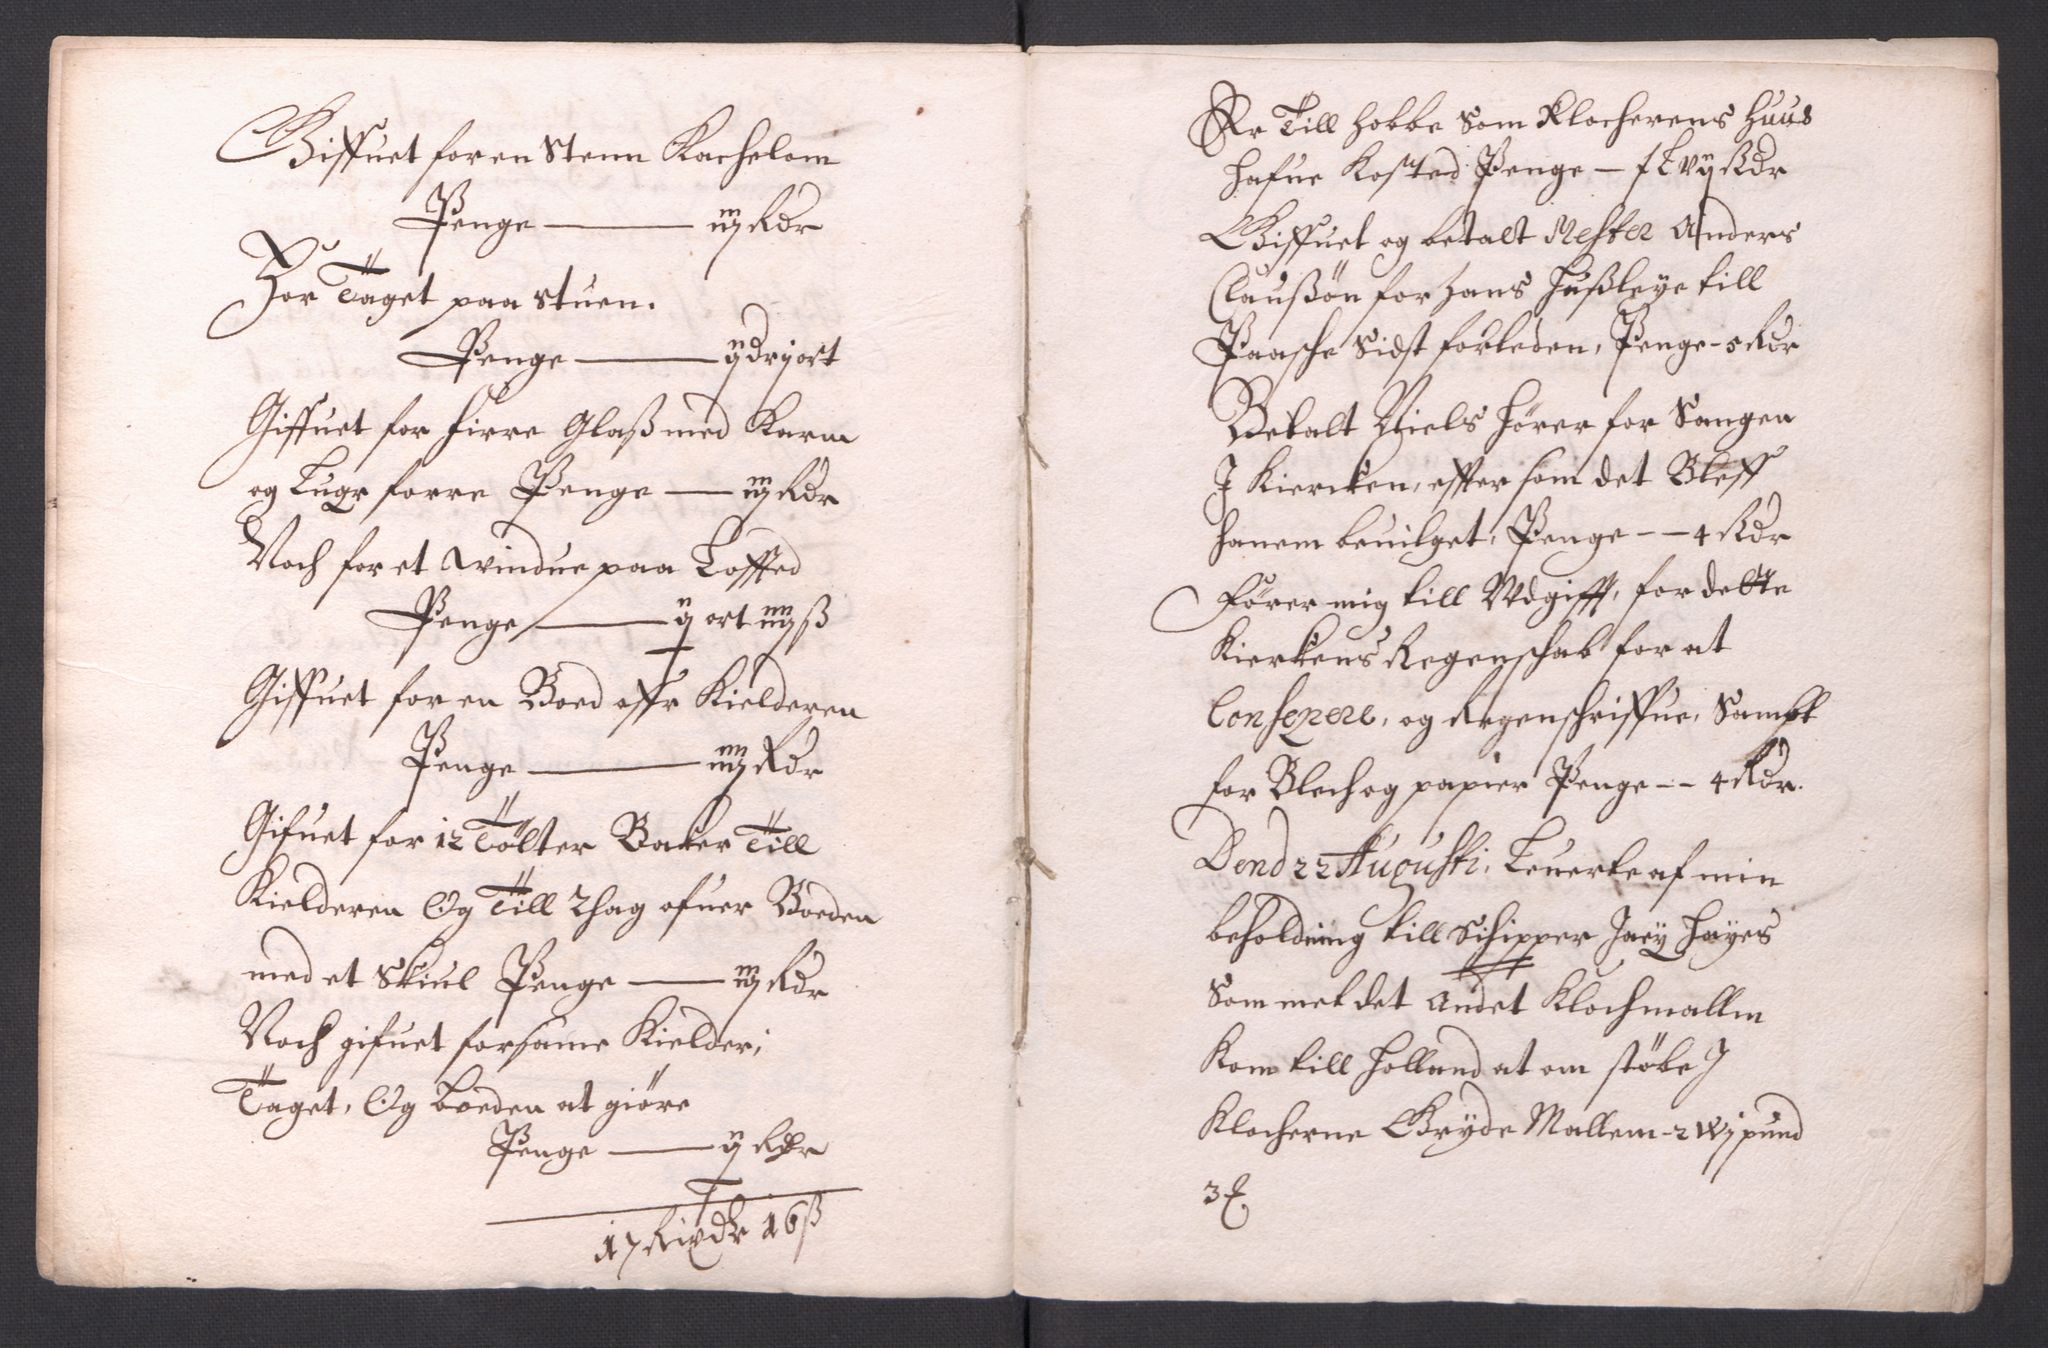 Giffuet for en Steen Kachelom
Penge — iij Rdr
For Taget paa stuen.
Penge — ij dr j ort
Giffuet for firre Glaß med Karm
og Lugr forre Penge — iij Rdr
Noch for et windue paa Loffted
Penge — ij ort iiij ß
Giffuet for en Boed offr Kielderen
Penge — iiij Rdr
Gifuet for 12 Tölter Baker Till
Kielderen Og Till Thag ofuer Boeden
med et Skiul Penge — iij Rdr
Noch gifuet for same Kielder,
Taget, Og boeden at giöre
Penge — ij Rdr
17 Rixdr 16 ß
Er Till hobbe Som Klocherens Huus
hafue Kosted Penge — Rdr
Giffuet og betalt Mester Anders
Claußön for hans Hußleye till
Paasche Sidst forleden, Penge - 5 Rdr
Betalt Niels Hörer for Sangen
I Kiercken, effter som det Bleff
hanem beuilget, Penge — 4 Rdr
Förer mig till Wdgifft, for dette
Kierkens Regenschab for at
Consepere, og Regenschriffue, Sampt
for Blech og papier Penge — 4 Rdr.
Dend 22 Augusti, Leuerte af min
beholdning till Schipper Jacy Hayes
Som met det Andet Klochmallm
Kom till Holland at om stöbe I
Klocherne Gryde Mallem - 2 Wj pund
3 ℔